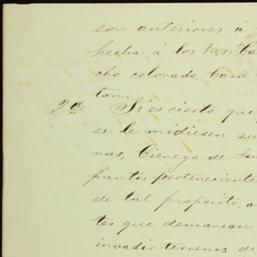 son anteriores á
fecha á los Sres. Ca
cho colorado, Cam
tam
2ª. Si es cierto que
se le midiesen su
nas, Cienega de
puntos pertenecient
de tal proposito, a
tes que demarcan
invadir terrenos de